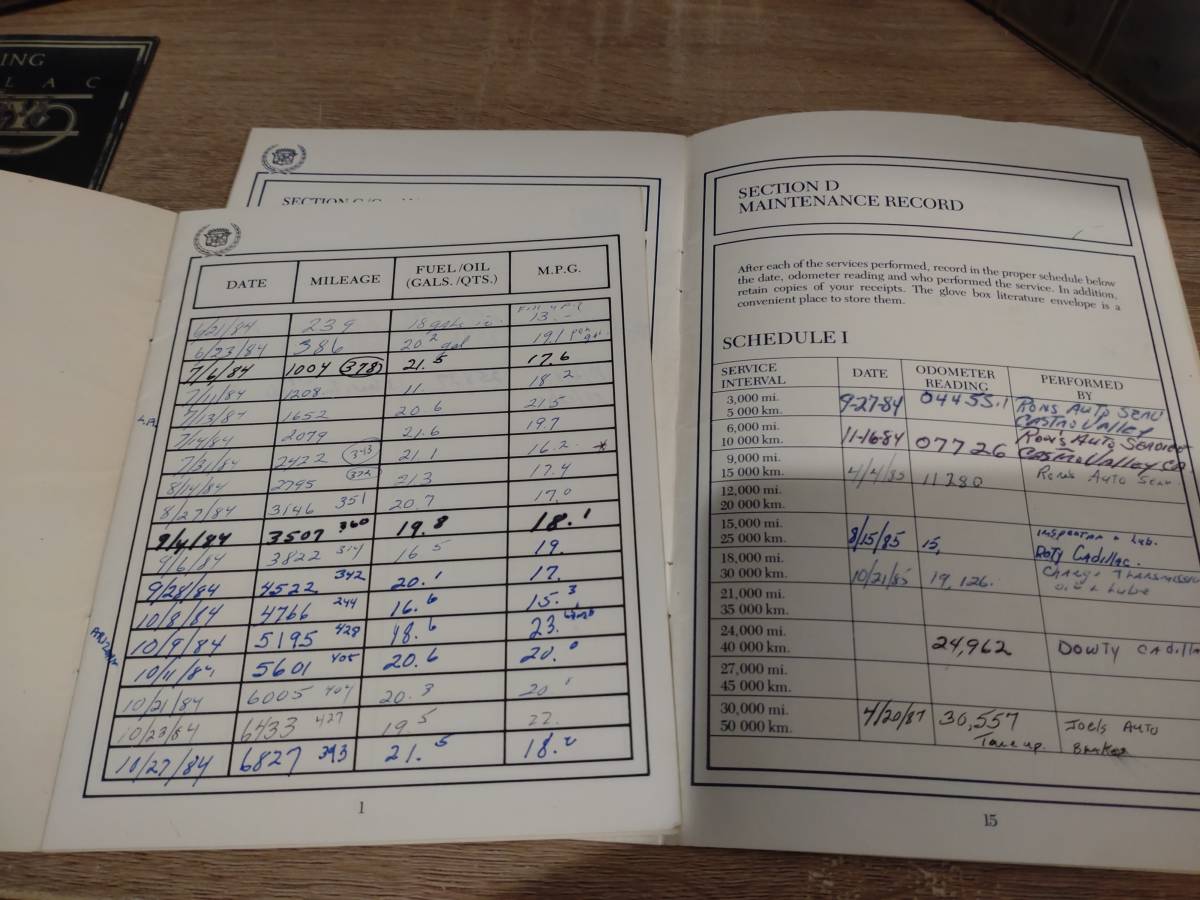 ING
L A C
DATE MILEAGE FUEL/OIL (GALS./QTS.) M.P.G.
6/21/84 239 18 13.-
6/23/84 386 20² gal 19.1
7/6/84 1004 (378) 21.5 17.6
7/11/84 1208. 11. 18.2
7/13/84 1652 20.6 21.5
7/14/84 2079 21.6 19.7
7/31/84 2422 (343) 21.1 16.2 *
8/14/84 2795 (373) 21.3 17.4
8/27/84 3146 351 20.7 17.0
9/4/84 3507 360 19.8 18.1
9/6/84 3822 314 16.5 19.
9/28/84 4522 342 20.1 17.
10/8/84 4766 244 16.6 15.3
10/9/84 5195 428 18.6 23.
10/11/84 5601 405 20.6 20.0
10/21/84 6005 404 20.3 20.
10/23/84 6433 427 19.5 22.
10/27/84 6827 393 21.5 18.2
1
SECTION D
MAINTENANCE RECORD
After each of the services performed, record in the proper schedule below
the date, odometer reading and who performed the service. In addition,
retain copies of your receipts. The glove box literature envelope is a
convenient place to store them.
SCHEDULE I
SERVICE INTERVAL DATE ODOMETER READING PERFORMED BY
3,000 mi. 9-27-84 04455.1 Rons Auto Serv
5 000 km. Castro Valley
6,000 mi. 11-16-84 07726 Ron's Auto Service
10 000 km. Castro Valley Ca
9,000 mi. 4/4/85 11280 Rons Auto Serv.
15 000 km.
12,000 mi.
20 000 km.
15,000 mi. 8/15/85 15, Inspection + Lub.
25 000 km. Doty Cadillac.
18,000 mi. 10/21/85 19,126. Change Transmission
30 000 km. oil + Lube
21,000 mi.
35 000 km.
24,000 mi. 24,962 Dowty Cadilla
40 000 km.
27,000 mi.
45 000 km.
30,000 mi. 4/20/87 30,557 Joels Auto
50 000 km. Tune up. Brakes
15